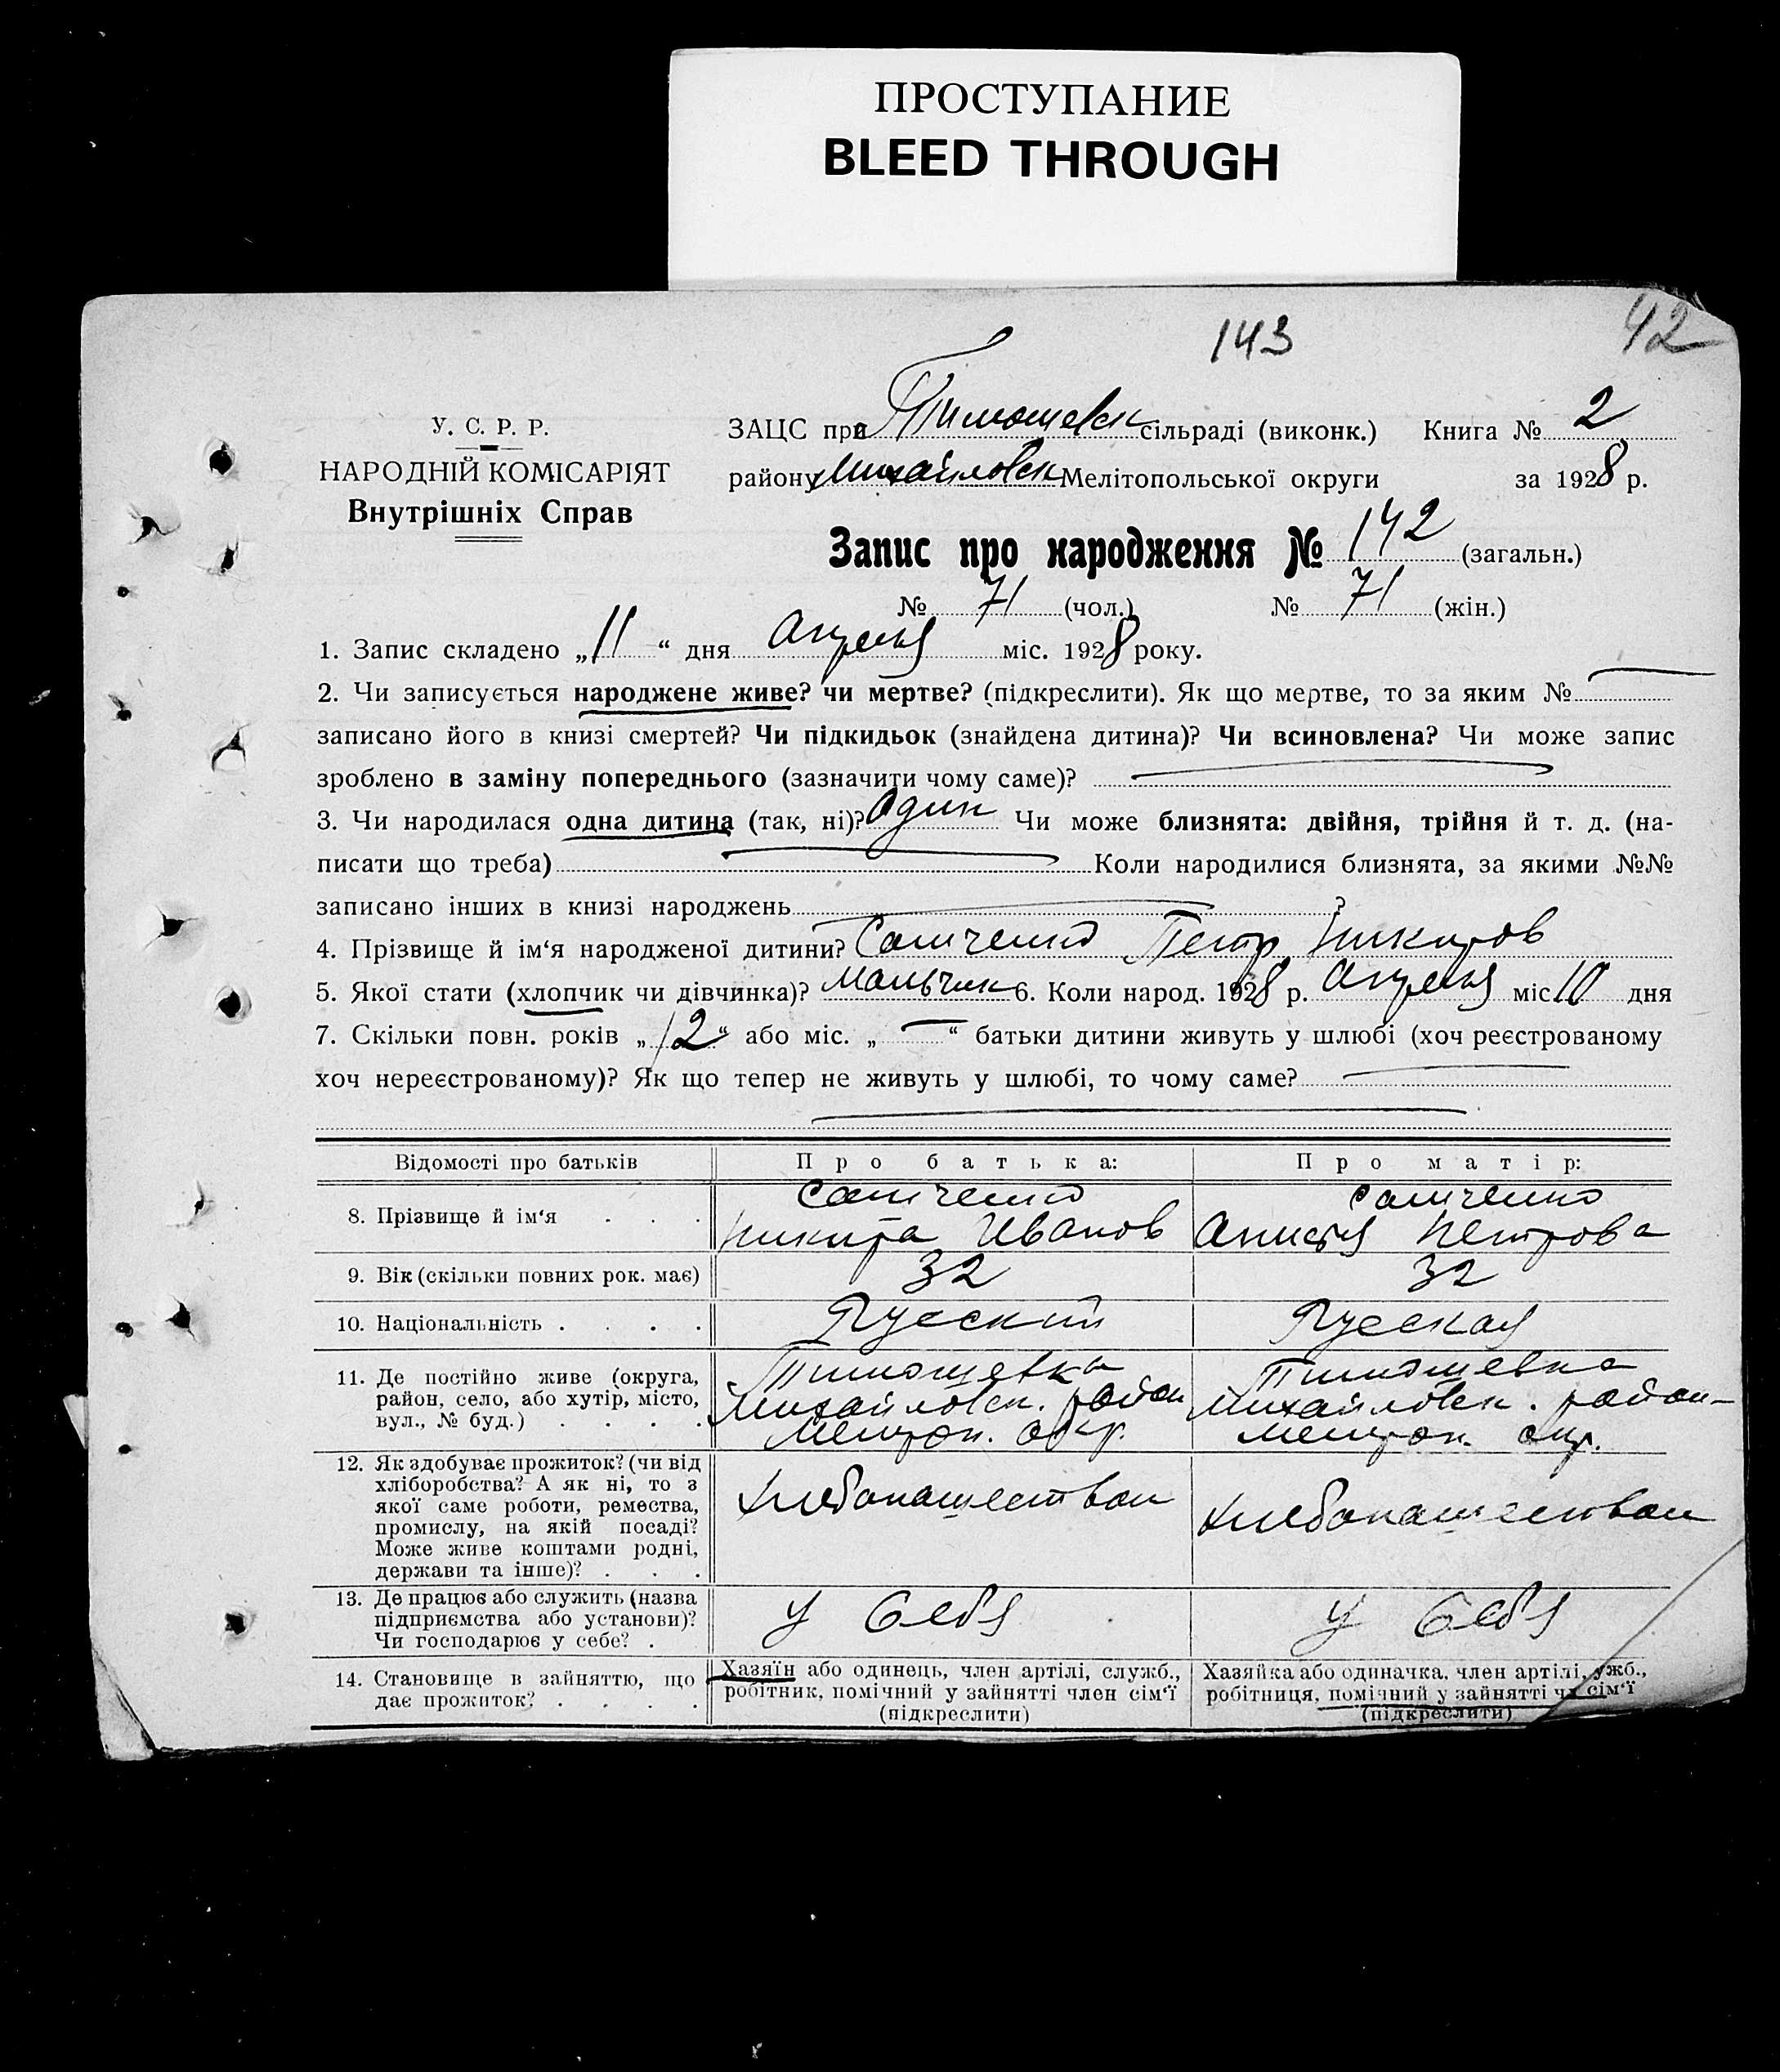 ПРОСТУПАНИЕ
BLEED THROUGH
143
42
У. С. Р. Р.
НАРОДНІЙ КОМІСАРІЯТ
Внутрішніх Справ
ЗАЦС при Тимошевск сільраді (виконк.) Книга № 2
району Михайловск Мелітопольської округи за 1928 р.
Запис про народження № 142 (загальн.)
№ 71 (чол.) № 71 (жін.)
1. Запис складено „11“ дня Апреля міс. 1928 року.
2. Чи записується народжене живе? чи мертве? (підкреслити). Як що мертве, то за яким №
записано його в книзі смертей? Чи підкидьок (знайдена дитина)? Чи всиновлена? Чи може запис
зроблено в заміну попереднього (зазначити чому саме)?
3. Чи народилася одна дитина (так, ні)? Один Чи може близнята: двійня, трійня й т. д. (на-
писати що треба) Коли народилися близнята, за якими №№
записано інших в книзі народжень ?
4. Прізвище й ім‘я народженої дитини? Петр Никитов
5. Якої стати (хлопчик чи дівчинка)? Мальчик 6. Коли народ. 1928 р. Апреля міс. 10 дня
7. Скільки повн. років „12“ або міс. „ “ батьки дитини живуть у шлюбі (хоч реєстрованому
хоч нереєстрованому)? Як що тепер не живуть у шлюбі, то чому саме?
Відомості про батьків Про батька: Про матір:
8. Прізвище й ім‘я . . . Никита Иванов Петрова
9. Вік (скільки повних рок. має) 32 32
10. Національність . . . . Русский Русская
11. Де постійно живе (округа,
район, село, або хутір, місто,
вул., № буд.) . . . .
Тимошевка
Михайловск. район
Мелитоп. окр.
Тимошевка
Михайловск. район
Мелитоп. окр.
12. Як здобуває прожиток? (чи від
хліборобства? А як ні, то з
якої саме роботи, ремества,
промислу, на якій посаді?
Може живе коштами родні,
держави та інше)? . . .
Хлебопашеством
Хлебопашеством
13. Де працює або служить (назва
підприємства або установи)?
Чи господарює у себе? .
У себя
У себя
14. Становище в зайняттю, що
дає прожиток? . . . .
Хазяїн або одинець, член артілі, служб.,
робітник, помічний у зайнятті член сім‘ї
(підкреслити)
Хазяйка або одиначка, член артілі, ужб.,
робітниця, помічний у зайнятті чл сім‘ї
(підкреслити)